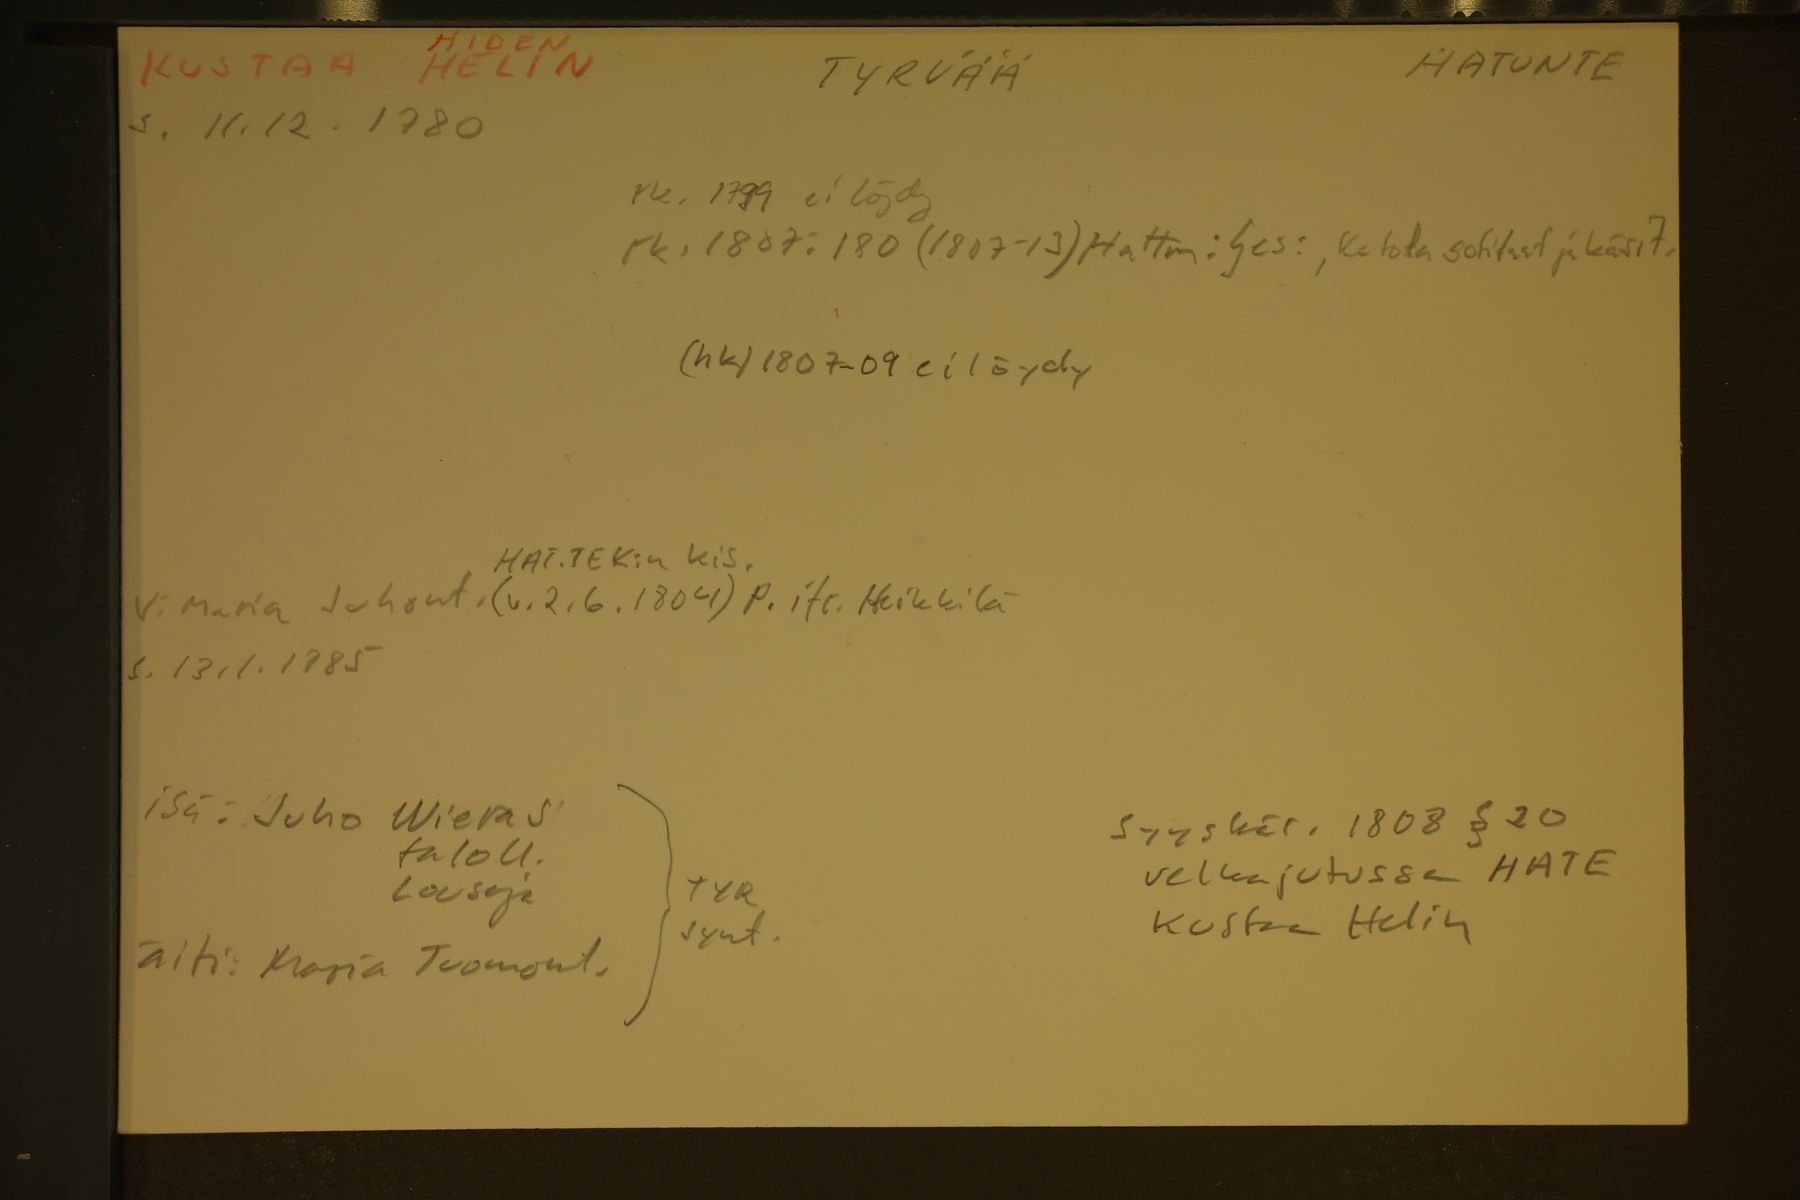 HIDEN
KUSTAA HELIN TYRVÄÄ HATUNTE
s. 11.12.1780
rk. 1799 ei löydy
rk. 1807: 180 (1807-13) Hattm: ges:, Katota
(hk) 1807-09 ei löydy
HAT.TEK:n kis.
V: Maria Juhont. (v. 2.6.1804) P. itr. Heikkilä
s. 13.1.1785
isä: Juho Wieras
taloll.
Lousaja
TYR
synt.
äiti: Maria Tuomont.
syyskär. 1808 § 20
velkajutussa HATE
Kustaa Helin